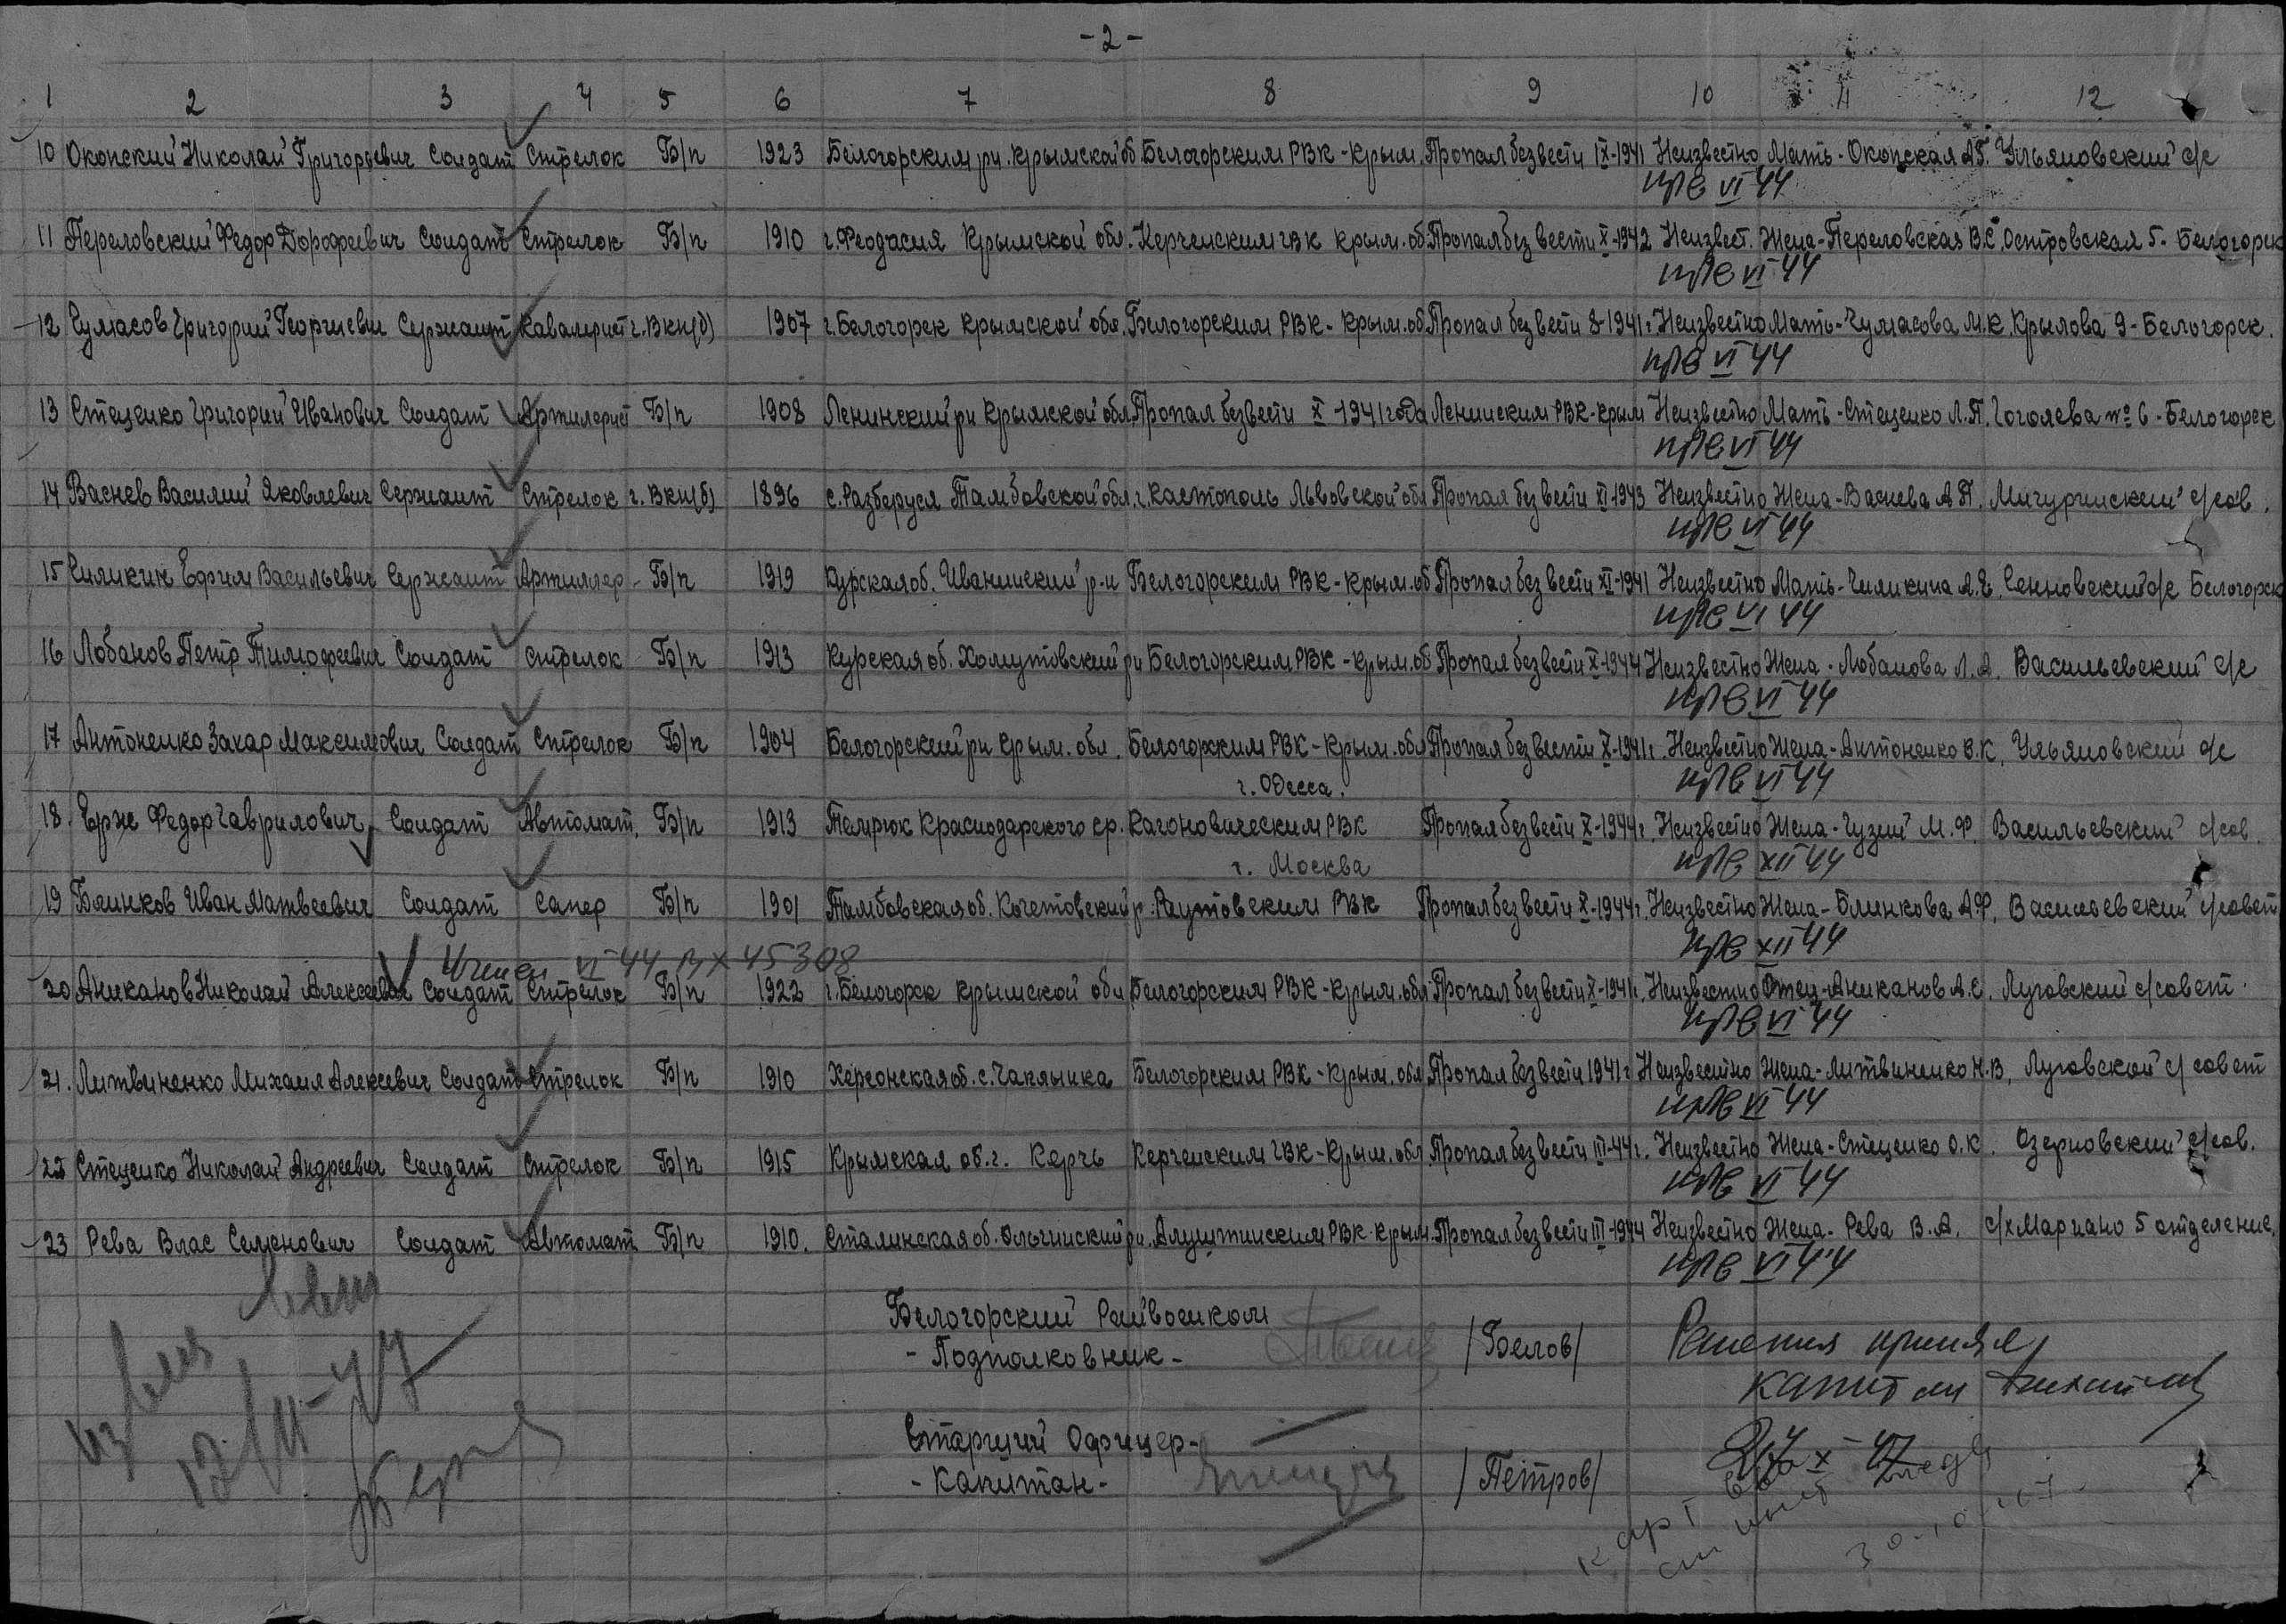 - 2 -
1 2 3 4 5 6 7 8 9 10 11 12
10 Окопский Николай Григорьевич Солдат Стрелок Б/п 1923 Белогорским рн. Крымской об. Белогорским РВК - Крым. Пропал без вести IX-1941 Неизвестно Мать - Окопская А.Г. Ульяновский с/с
прб VI 44
11 Переловский Федор Дорофеевич Солдат Стрелок Б/п 1910 г. Феодасия Крымской обл. Керченским ГВК Крым. об. Пропал без вести X-1942 Неизвест. Жена - Переловская В.С. Островская 5 - Белогорск
прб VI 44
12 Чумасов Григорий Георгиевич Сержант Кавалерист г. ВКП(б) 1907 г. Белогорск Крымской обл. Белогорским РВК - Крым. об. Пропал без вести 8-1941г. Неизвестно Мать - Чумасова М.К. Крылова 9 - Белогорск.
прб VI 44
13 Стеценко Григорий Иванович Солдат Артилерист Б/п 1908 Ленинский рн Крымской обл. Пропал без вести X-1941 года Ленинским РВК - Крым Неизвестно Мать - Стеценко Л.П. Гоголева № 6 - Белогорск
прб VI 44
14 Васнев Василий Яковлевич Сержант Стрелок г. ВКП(б) 1896 с. Разберуся Тамбовской обл. г. Кастополь Львовской обл Пропал без вести XI-1943 Неизвестно Жена - Васнева А.П. Мичуринский с/сов.
прб VI 44
15 Чиликин Ефим Васильевич Сержант Артиллер. Б/п 1919 Курская об. Иванинский р-н Белогорским РВК - Крым. об Пропал без вести XI-1941 Неизвестно Мать - Чиликина А.Е. Сенновский с/с Белогорск
прб VI 44
16 Лобанов Петр Тимофеевич Солдат стрелок Б/п 1913 Курская об. Хомутовский рн Белогорским РВК - Крым. об Пропал без вести X-1944 Неизвестно Жена - Лобанова Л.А. Васильевский с/с
прб VI 44
17 Антоненко Захар Максимович Солдат Стрелок Б/п 1904 Белогорский рн Крым. обл. Белогорским РВК - Крым. обл Пропал без вести X-1941г. Неизвестно Жена - Антоненко В.К. Ульяновский с/с
прб VI 44
г. Одесса.
18. Ерж Федор Гаврилович Солдат Автомат. Б/п 1913 Темрюк Краснодарского кр. Кагоновическим РВК Пропал без вести X-1944г. Неизвестно Жена - Гузий М.Ф. Васильевский с/сов.
прб XII 44
г. Москва
19 Блинков Иван Матвеевич Солдат Сапер Б/п 1901 Тамбовская об. Кочетовский р. Реутовским РВК Пропал без вести X-1944г. Неизвестно Жена - Блинкова А.Ф. Васильевский с/совет
прб XII 44
Учтен VI-44 вх 45308
20 Аниканов Николай Алексеевич Солдат Стрелок Б/п 1922 г. Белогорск Крымской обл Белогорским РВК - Крым. обл Пропал без вести X-1941г. Неизвестно Отец - Аниканов А.С. Луговский с/совет.
прб VI 44
21. Литвиненко Михаил Алексеевич Солдат Стрелок Б/п 1910 Херсонская об. с. Чаклынка Белогорским РВК - Крым. обл Пропал без вести 1941г Неизвестно Жена - Литвиненко Н.В. Луговской с/совет
прб VI 44
22 Стеценко Николай Андреевич Солдат Стрелок Б/п 1915 Крымская об. г. Керчь Керченским ГВК - Крым. обл Пропал без вести III-44г. Неизвестно Жена - Стеценко О.К. Озерновский с/сов.
прб VI 44
23 Рева Влас Семенович Солдат Автомат Б/п 1910. Сталинская об. Ольгинский рн. Алуштинским РВК - Крым. Пропал без вести III-1944 Неизвестно Жена - Рева В.А. с/х Мариано 5 отделение.
прб VI 44
Белогорский Райвоенком
- Подполковник - /Белов/
Старший Офицер -
- Капитан - /Петров/
Решения принял
капитан
30-10-47